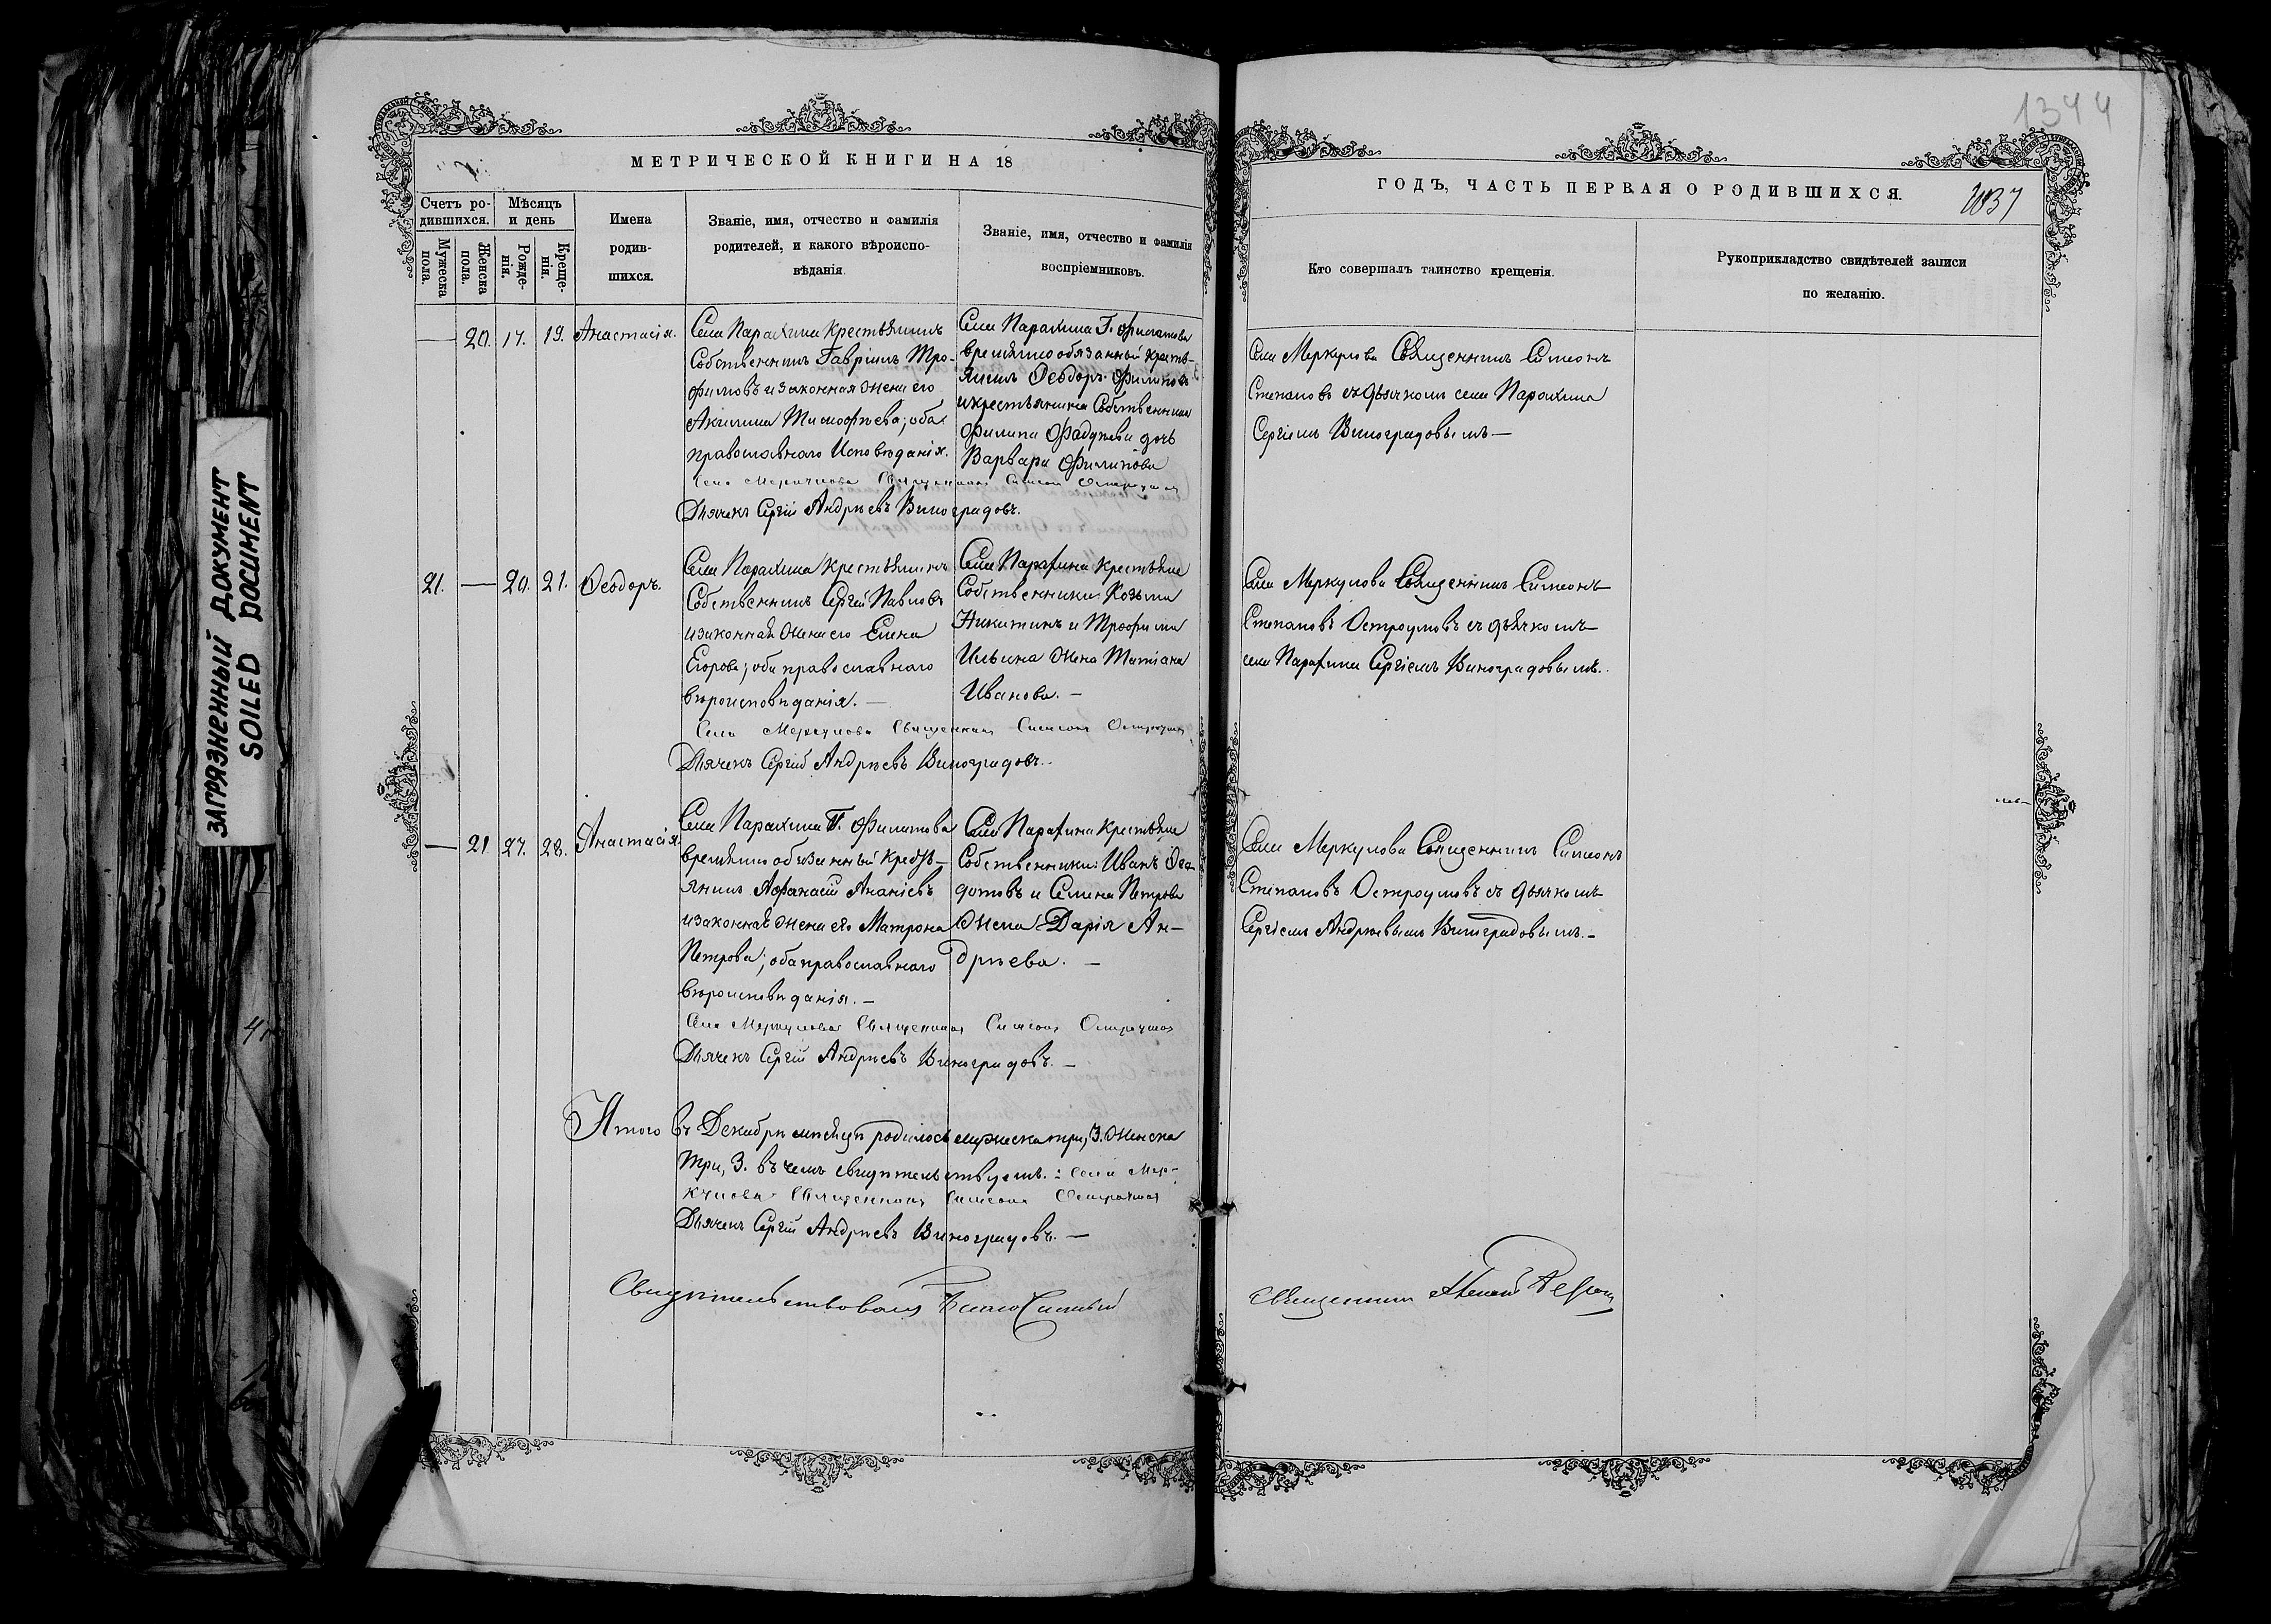 ЗАГРЯЗНЕННЫЙ ДОКУМЕНТ
SOILED DOCUMENT
1344
МЕТРИЧЕСКОЙ КНИГИ НА 18
Счетъ ро-
дившихся.
Мѣсяцъ
и день
Мужеска
пола.
Женска
пола.
Рожде-
нія.
Креще-
нія.
Имена
родив-
шихся.
Званіе, имя, отчество и фамилія
родителей, и какого вѣроиспо-
вѣданія
Званіе, имя, отчество и фамилія
воспріемниковъ.
20. 17. 19. Анастасія.
Села Парахина Крестьянинъ
Собственникъ Гавріилъ Тро-
фимовъ и законная жена его
Акилина Тимофѣева; оба
православнаго Исповѣданія.
Села Парахина Г. Филатова
временно обязанный кресть-
янинъ Ѳеодоръ Филиповъ
и крестьянина Собственника
Филипа Фадѣева дочь
Варвара Филипова
Села Меркулова Священникъ Симеонъ Остроумовъ
Дьячекъ Сергій Андрѣевъ Виноградовъ.
21. — 20. 21. Ѳеодоръ.
Села Парахина Крестьянинъ
Собственникъ Сергій Павловъ
и законная жена его Елена
Егорова; оба православнаго
вѣроисповѣданія. —
Села Парахина Крестьяне
Собственники: Козьма
Никитинъ и Трофима
Ильина жена Татіана
Иванова. —
Села Меркулова Священникъ Симеонъ Остроумовъ
Дьячекъ Сергій Андрѣевъ Виноградовъ.
— 21 27. 28. Анастасія.
Села Парахина Г. Филатова
временно обязанный кресть-
янинъ Афанасій Ананіевъ
и законная жена его Матрона
Петрова; оба православнаго
вѣроисповѣданія. —
Села Парахина Крестьяне
Собственники: Иванъ Ѳео-
дотовъ и Семена Петрова
жена Дарія Ан-
дрѣева. —
Села Меркулова Священникъ Симеонъ Остроумовъ
Дьячекъ Сергій Андрѣевъ Виноградовъ. —
Итого въ Декабрѣ мѣсяцѣ родилось мужеска три, 3. женска
три, 3. въ чемъ свидѣтельствуемъ: Села Мер-
кулова Священникъ Симеонъ Остроумовъ
Дьячекъ Сергій Андрѣевъ Виноградовъ. —
Свидѣтельствовалъ Благочинный
ГОДЪ, ЧАСТЬ ПЕРВАЯ О РОДИВШИХСЯ.
1037
Кто совершалъ таинство крещенія.
Рукоприкладство свидѣтелей записи
по желанію.
Села Меркулова Священникъ Симеонъ
Степановъ съ дьячкомъ села Парахина
Сергіемъ Виноградовымъ —
Села Меркулова Священникъ Симеонъ
Степановъ Остроумовъ съ дьячкомъ
села Парахина Сергіемъ Виноградовымъ.
Села Меркулова Священникъ Симеонъ
Степановъ Остроумовъ съ дьячкомъ
Сергіемъ Андрѣевымъ Виноградовымъ. —
Священникъ